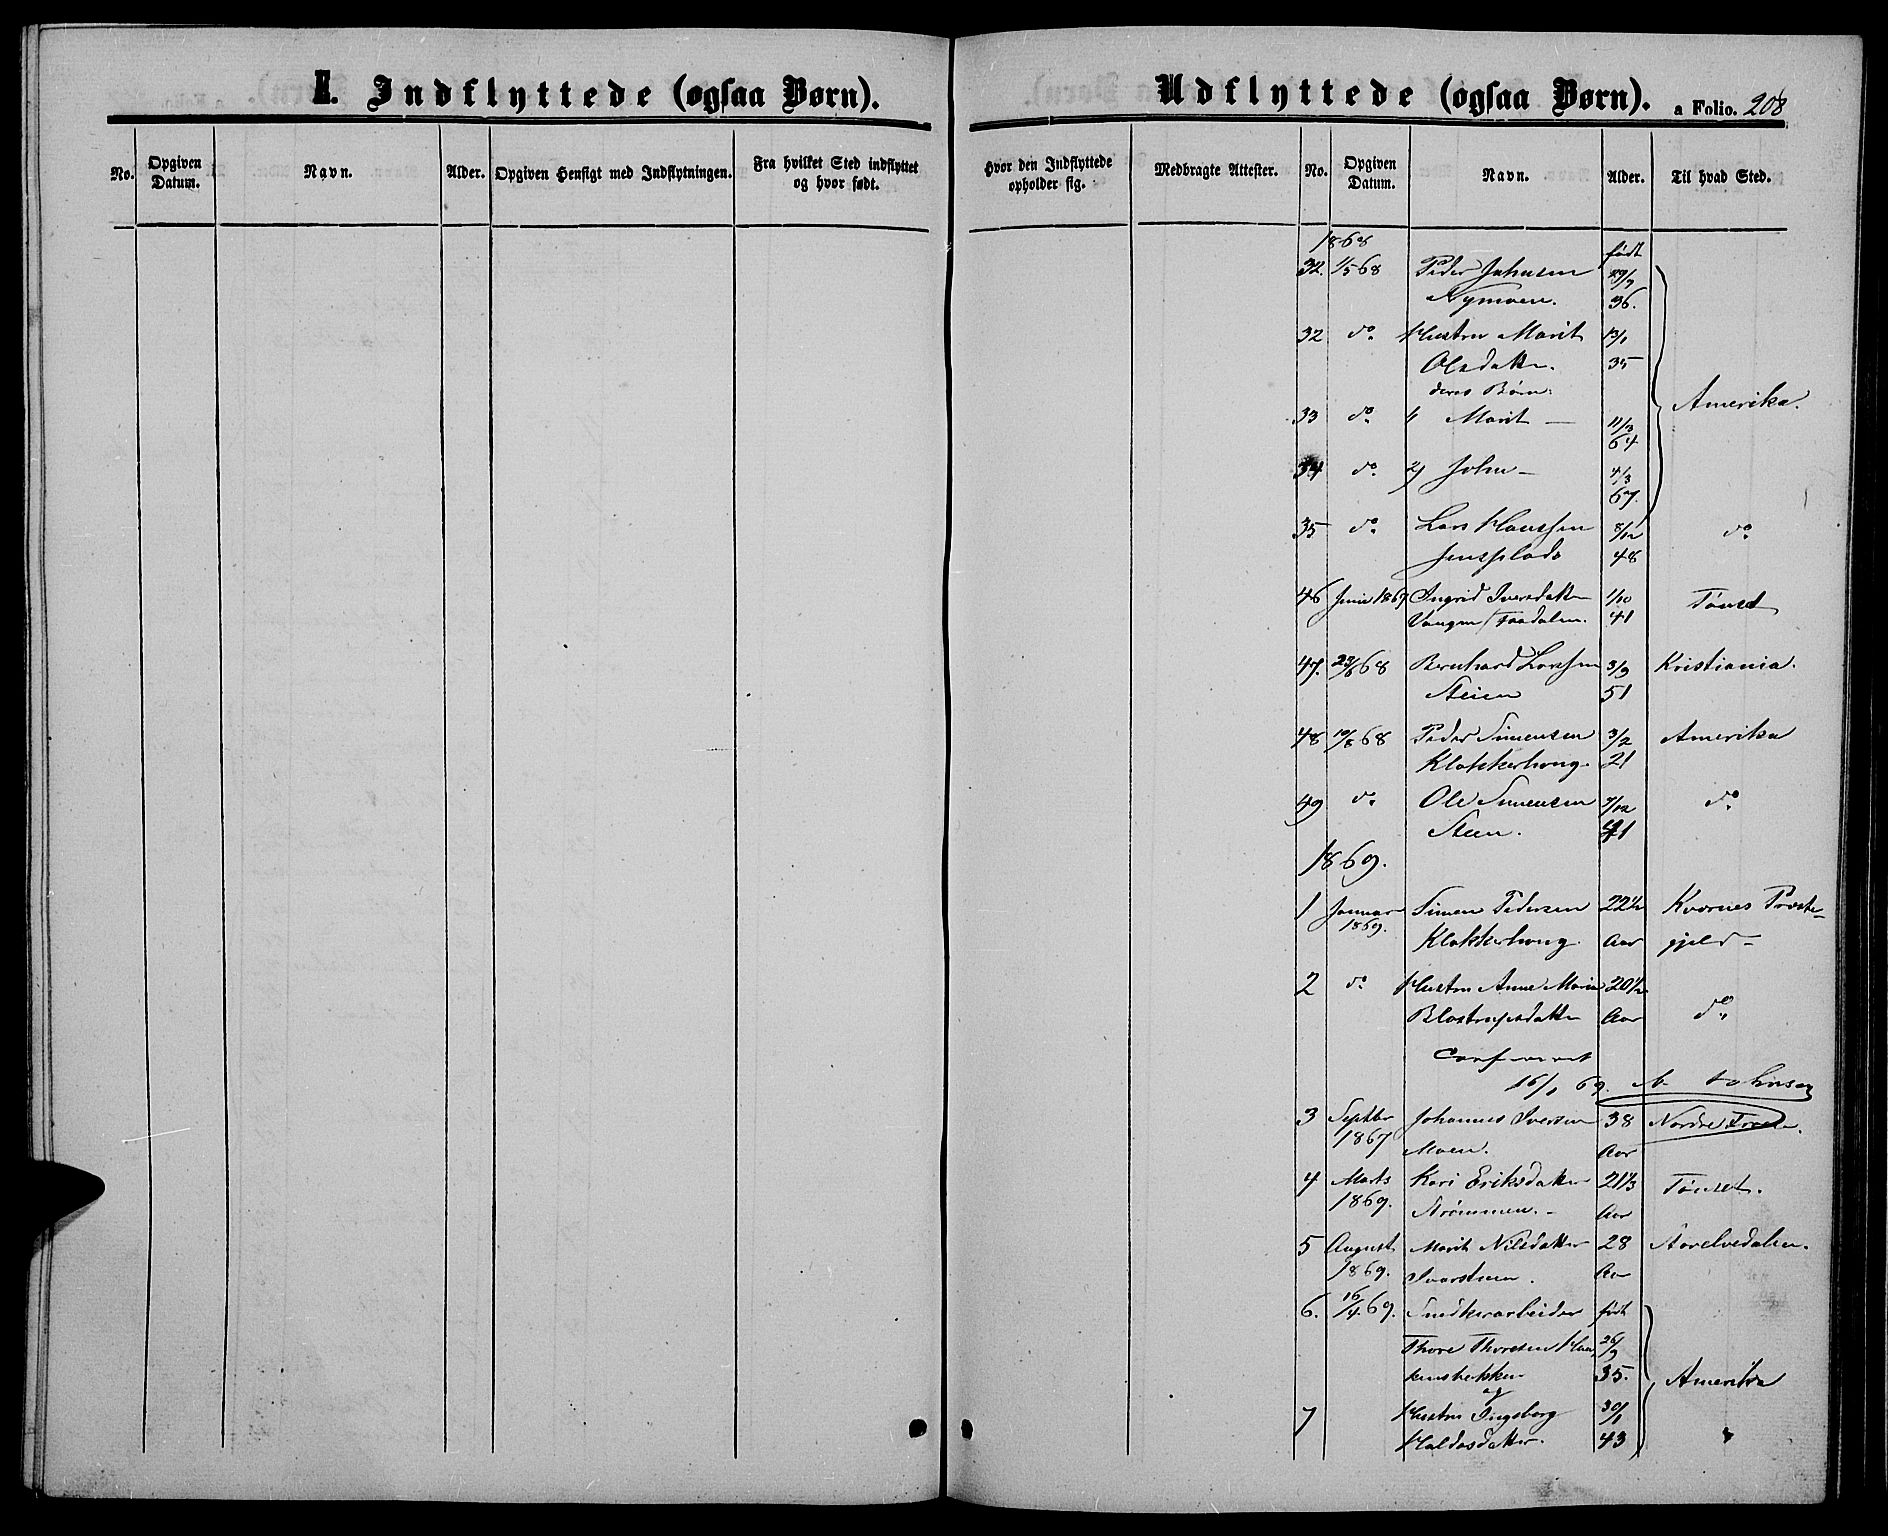 II. Indflyttede (ogsaa Børn).
No. Opgiven Datum. Navn. Alder. Opgiven Hensigt med Indflytningen. Fra hvilket Sted indflyttet og hvor født.
Udflyttede (ogsaa Børn). a Folio. 208
Hvor den Indflyttede opholder sig. Medbragte Attester. No. Opgiven Datum. Navn. Alder. Til hvad Sted.
1868 født
32. 1/5 68 Peder Johnsen 29/7
Nymoen. 36.
32 do Hustru Marit 13/1
Olsdatter. 35
deres Børn: Amerika.
33 do 1/ Marit — 11/3
64
34 do 2/ John — 4/3
67.
35 do Lars Hansen 8/12 do
Jensplads 48
46 Juni 1867 Ingrid Iversdatter 1/10 Tönset
Vangen / Faadalen. 41
47. 23/6 68 Bernhard Larsen 3/9 Kristiania.
Steien 51
48 10/8 68 Peder Simensen 3/2 Amerika
Klokkerhoug. 21
49 do Ole Simensen 7/12 do
Steen. 41
1869.
1 Januar 1869. Simen Pedersen 22 1/2 Kvernes Præste-
Klokkerhoug. Aar gjeld —
2 do Hustru Anne Maria 20 1/2
Aar do
Confereret
16/1 69.
3 Septbr 1867 Johannes Iversen 38 Nordre
Moen. Aar
4 Marts 1869. Kari Eriksdatter 21 1/3 Tönset.
Strømmen. — Aar
5 August 1869. Marit Nilsdatter 28
Aar
6. 16/4 69. Snedkerarbeider født
Thore Thoresen 26/9
35. Amerika
og
7 Hustru Ingeborg 30/1
Haldosdatter. 43 "